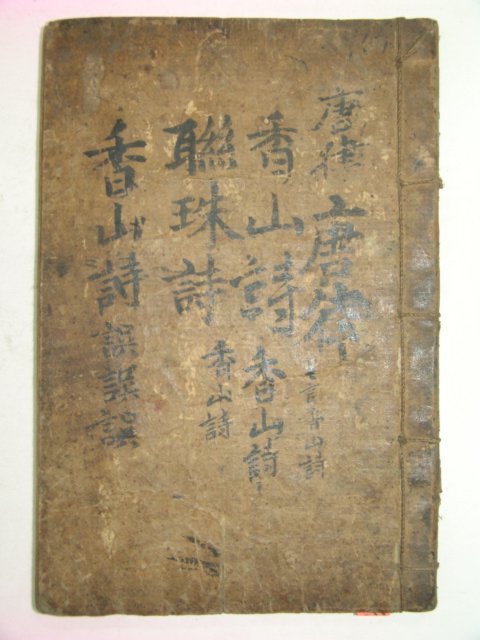 唐律 唐律 七言香山詩
香山詩 香山詩
聯珠詩 香山詩
香山詩 誤誤誤